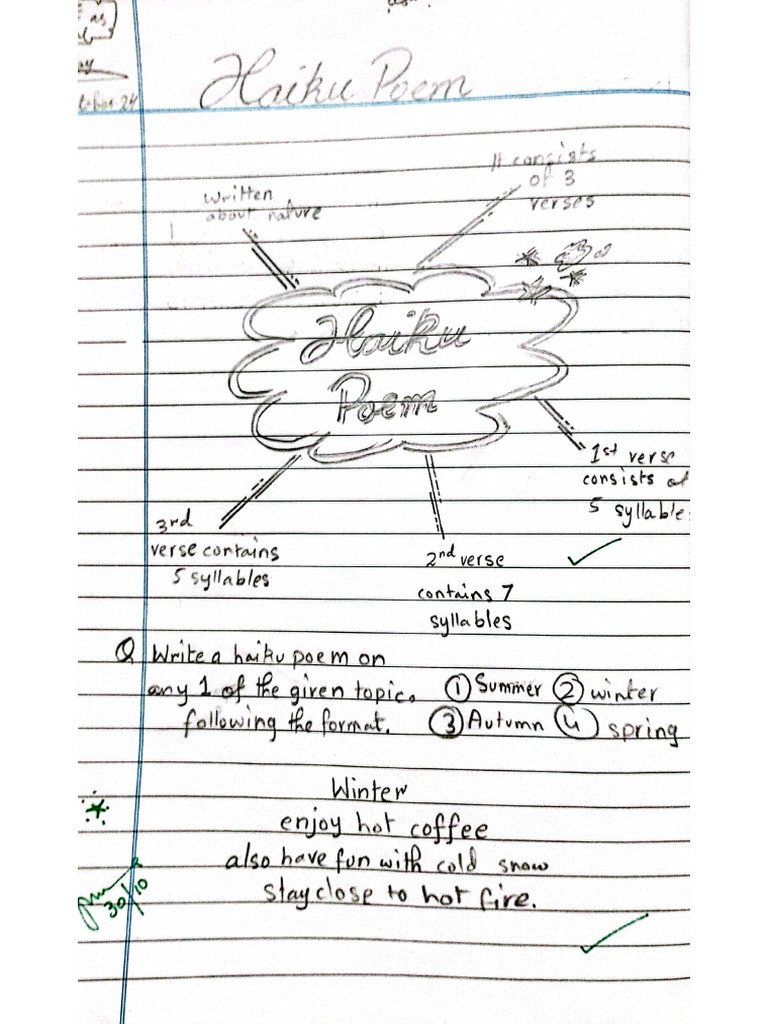 as
Haiku Poem
written
about nature
It consists
of 3
verses
Haiku
Poem
1st verse
consists of
5 syllable
3rd
verse contains
5 syllables
2nd verse
contains 7
syllables
Q Write a haiku poem on
any 1 of the given topic. ① Summer ② winter
following the format. ③ Autumn ④ spring
Winter
enjoy hot coffee
also have fun with cold snow
stay close to hot fire.
30/10